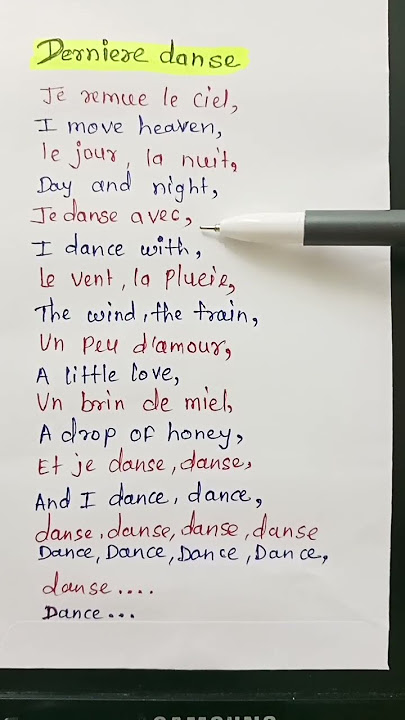 Derniere danse
Je remue le ciel,
I move heaven,
le jour, la nuit,
Day and night,
Je danse avec,
I dance with,
Le vent, la plueie,
The wind, the train,
Un Peu d'amour,
A little love,
Un brin de miel,
A drop of honey,
Et je danse, danse,
And I dance, dance,
danse, danse, danse, danse
Dance, Dance, Dance, Dance,
danse....
Dance...
SAMSUNG